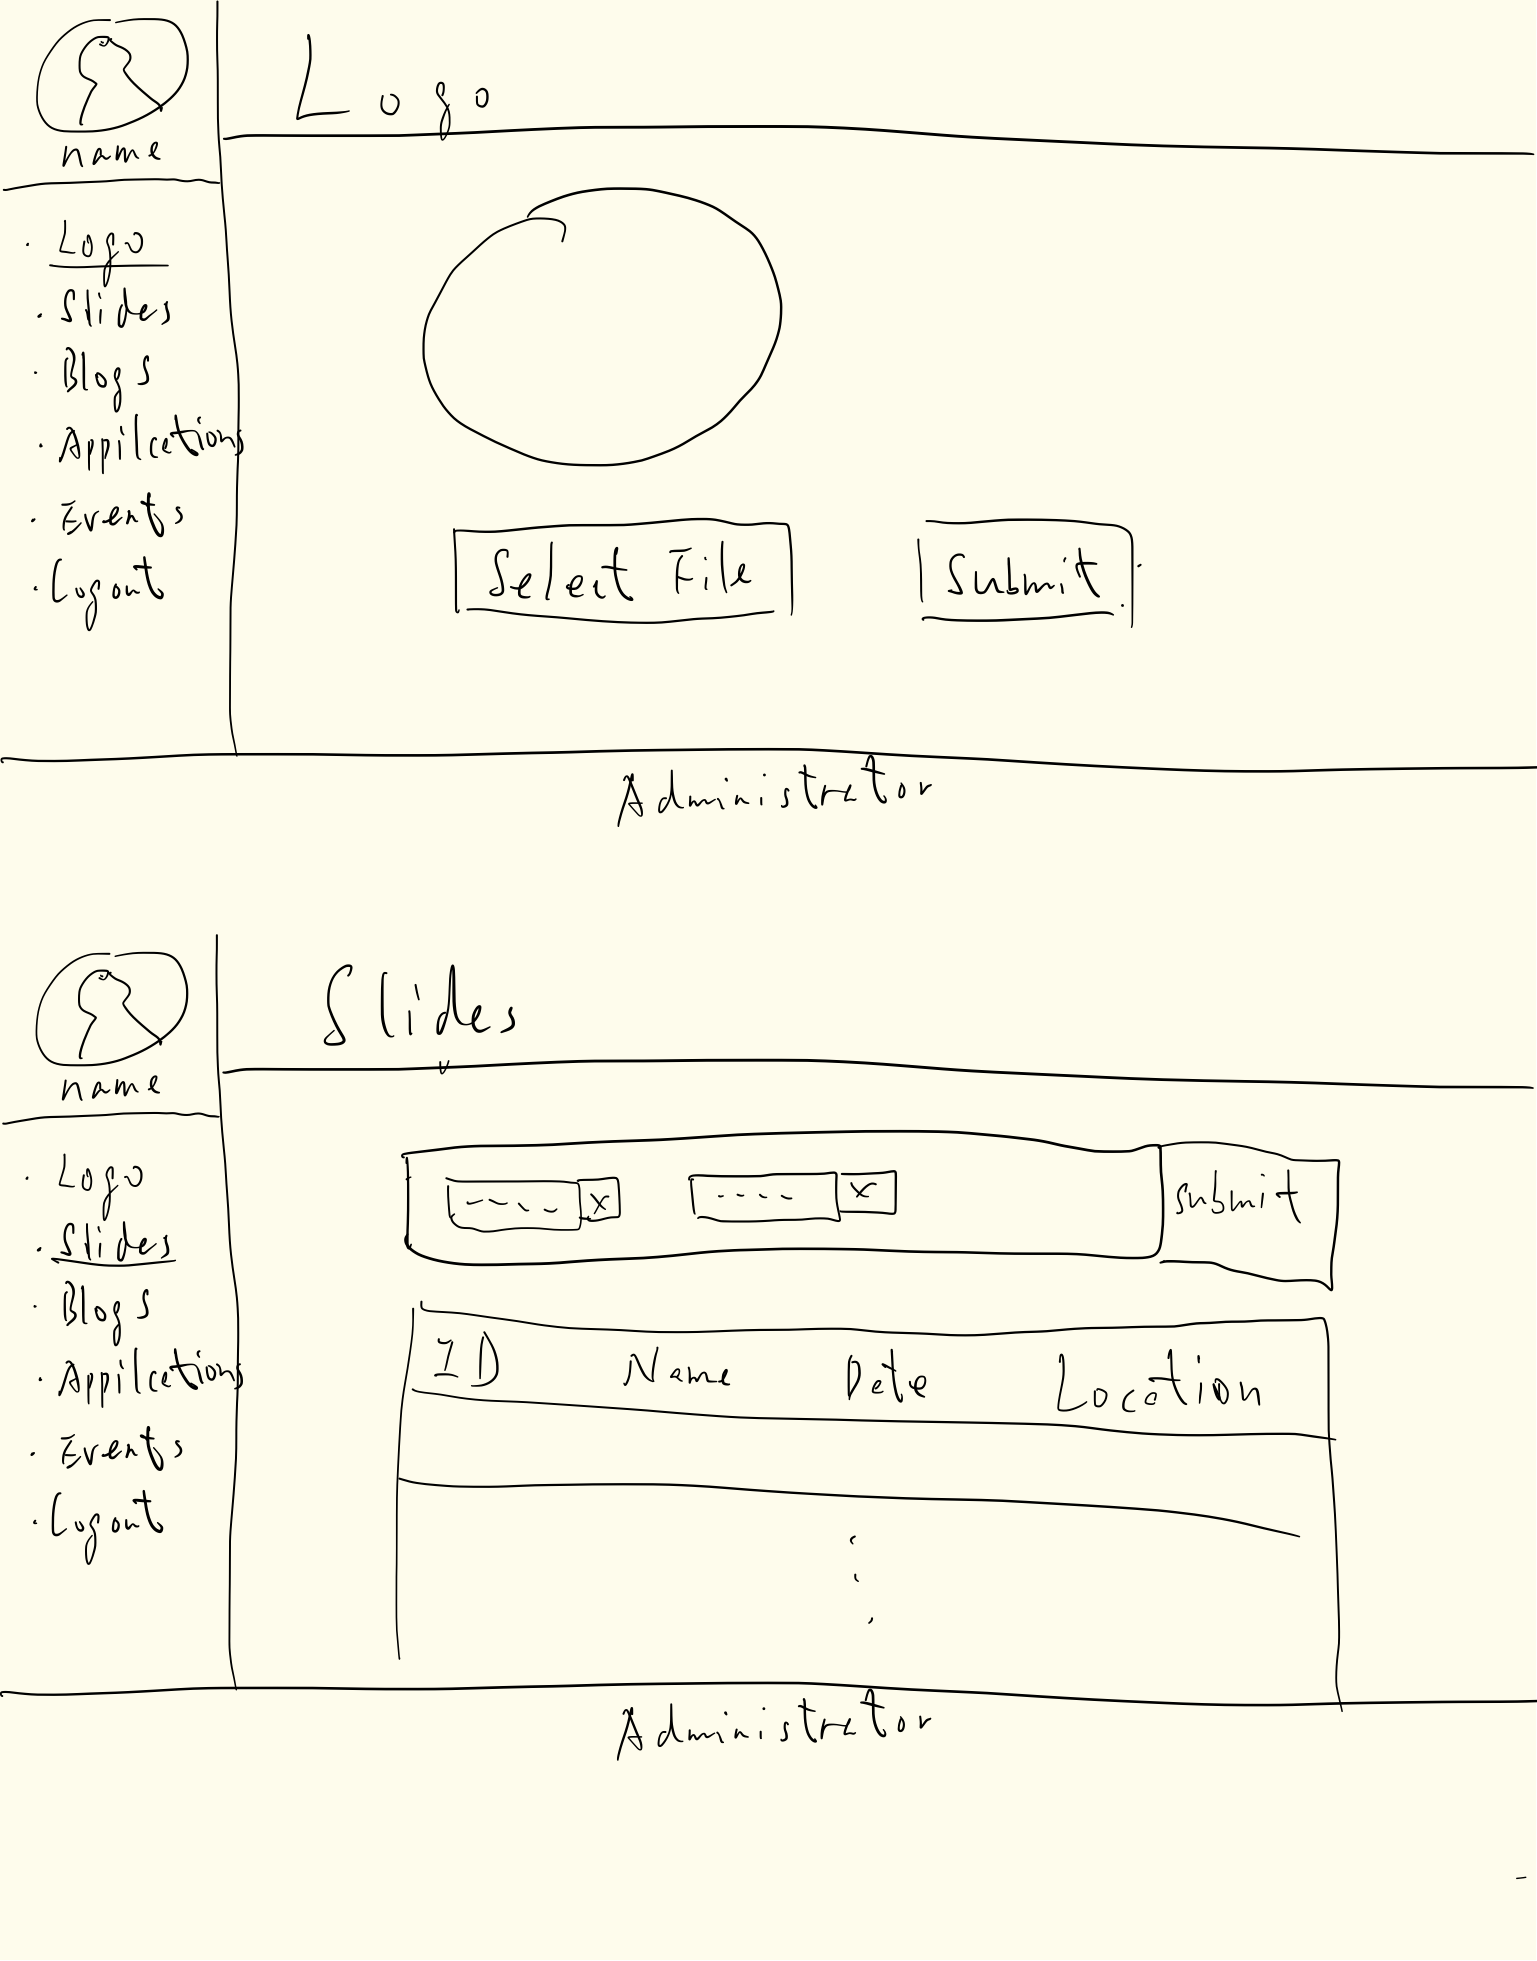 Logo
name
· Logo
· Slides
· Blogs
· Appilcations
· Events
· Logout
Select File Submit
Administrator
Slides
name
· Logo
· Slides
· Blogs
· Appilcations
· Events
· Logout
---- x ---- x submit
ID Name Date Location
Administrator